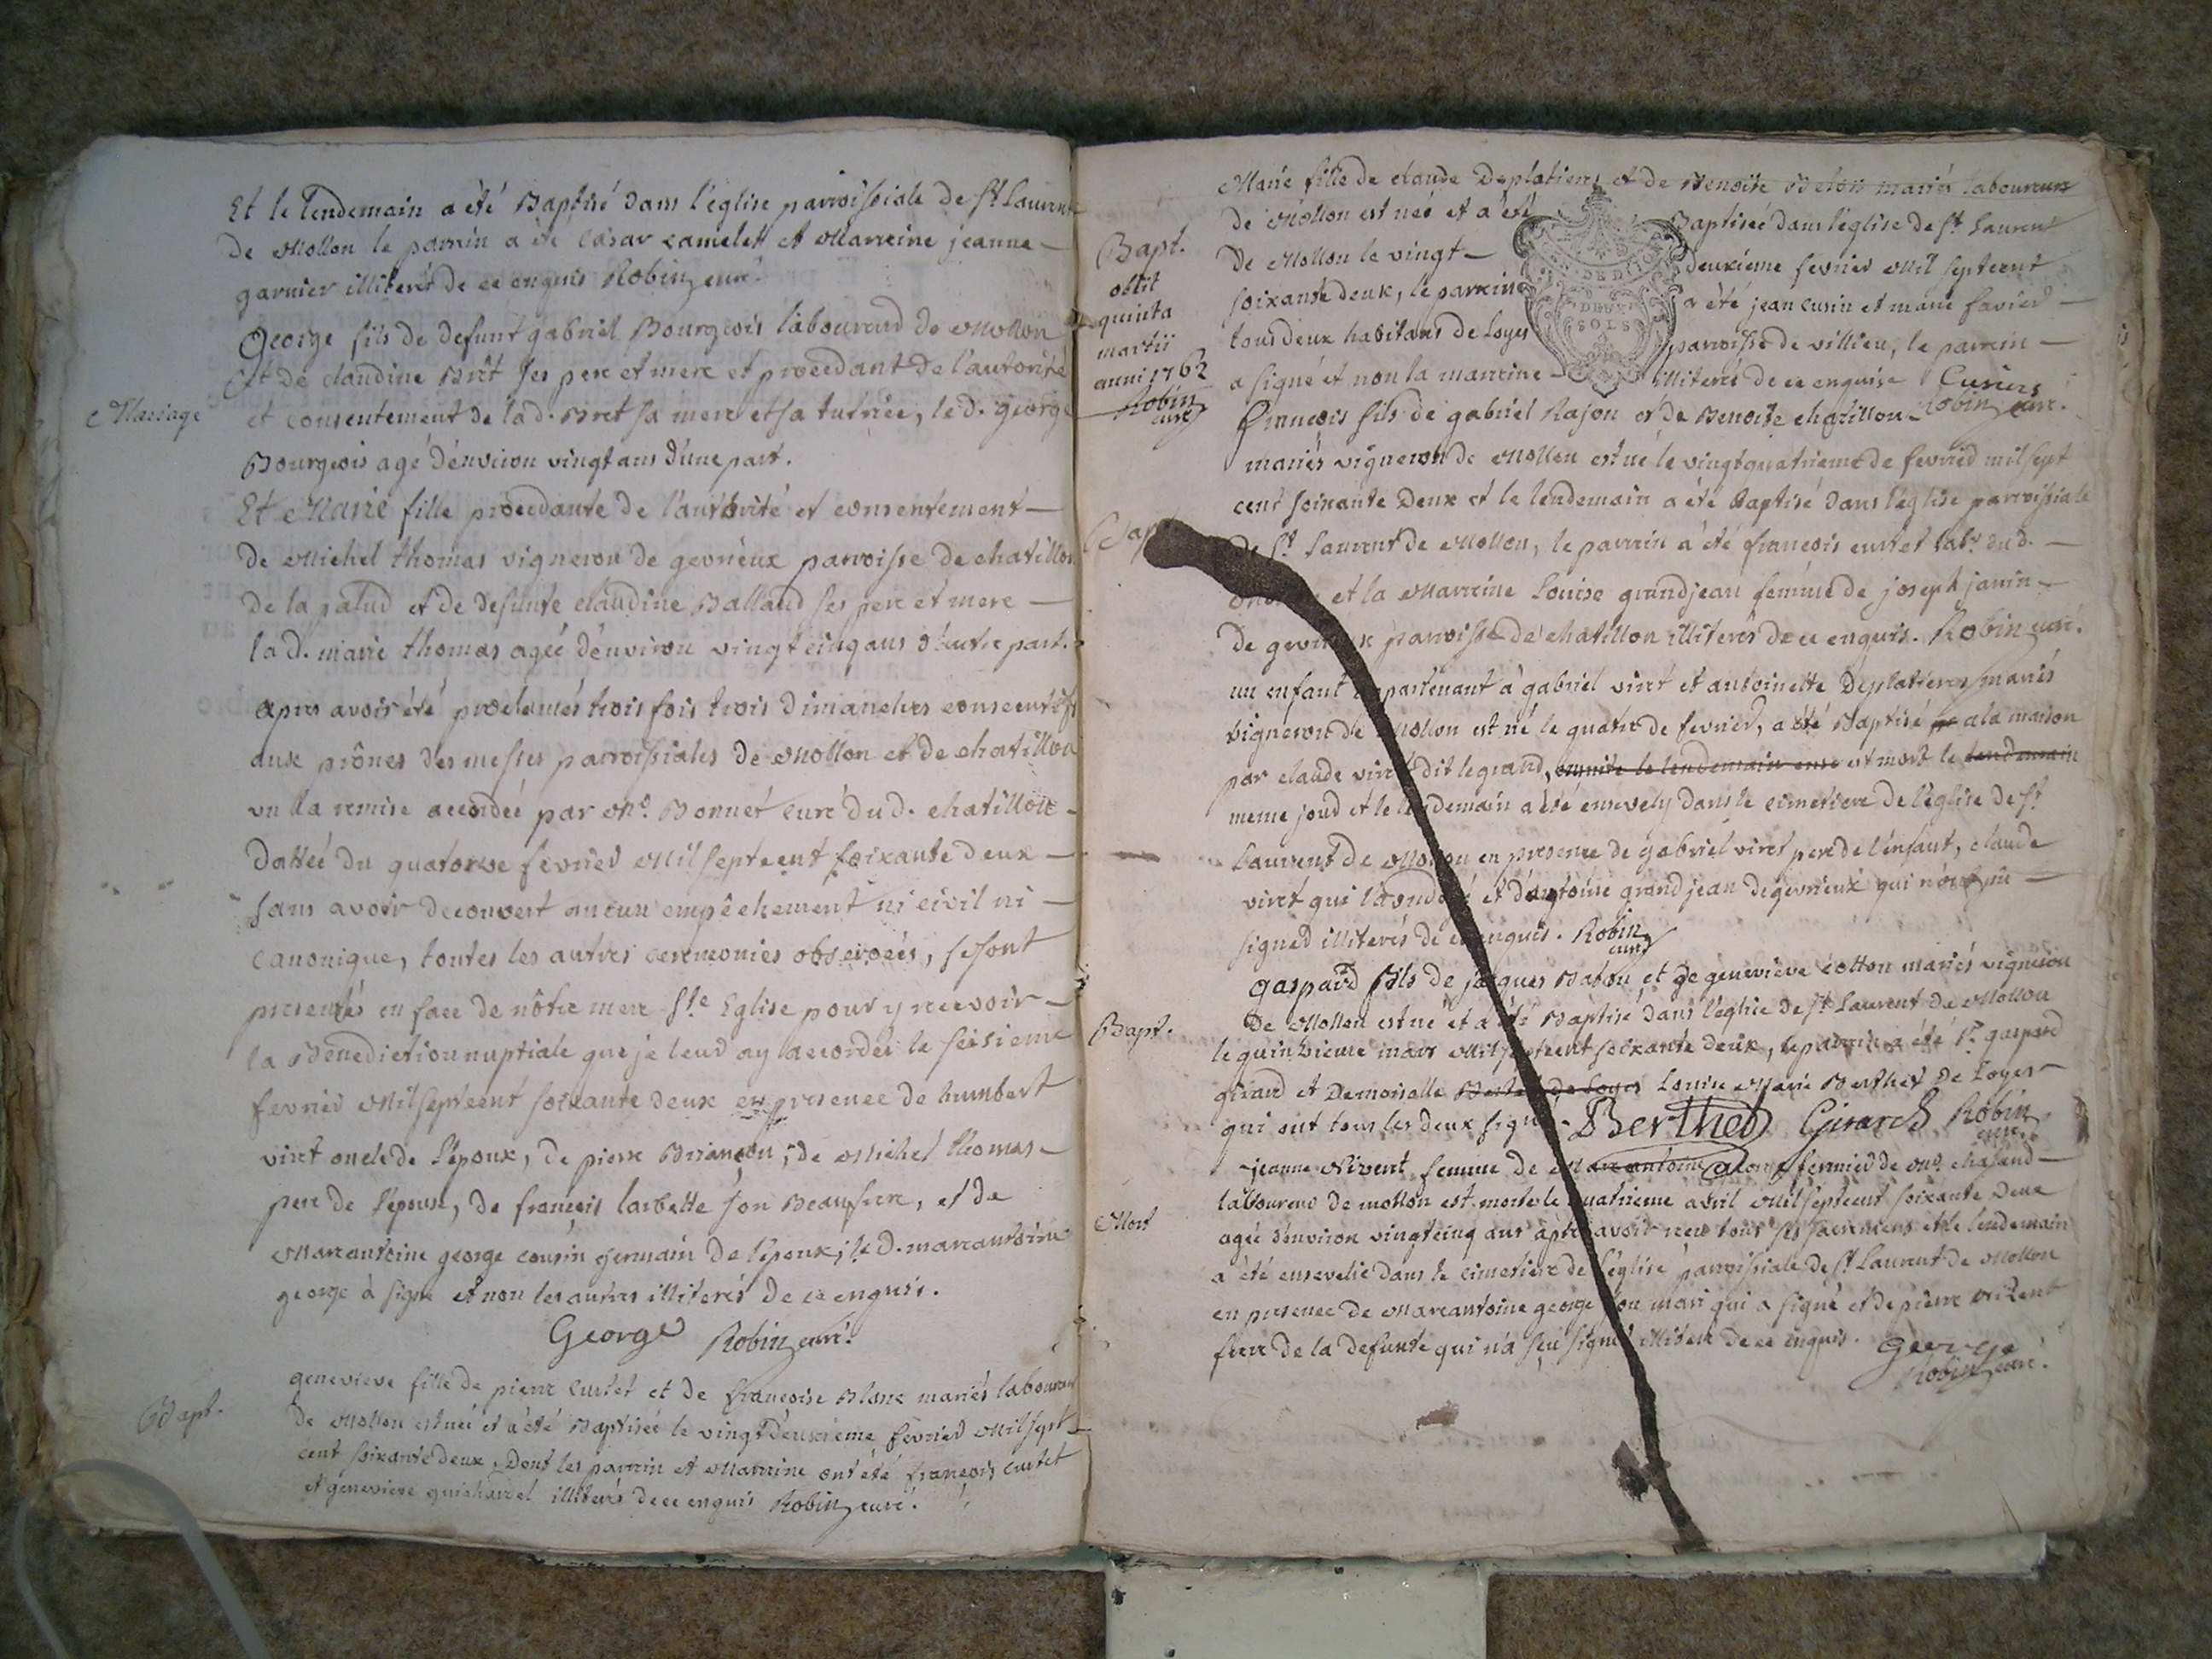 Et le lendemain a été Baptisé dans l'église parroissiale de St. Laurent
de Mollon le parrain a été César camelet et Marreine jeanne
garnier illiterés de ce enquis Robin curé.
George fils de defunt gabriel Bourgeois laboureur de Mollon
Et de claudine Biret ses pere et mere et procedant de l'autorité
Mariage
et consentement de lad. Biret sa mere et sa tutrice, le d. george
Bourgeois agé d'environ vingt ans d'une part.
Et Marie fille procedante de l'autorité et consentement
de Michel thomas vigneron de gevrieux parroisse de chatillon
de la palud et de defunte claudine Balland ses pere et mere
la d. marie thomas agée d'environ vingt cinq ans d'autre part.
apres avoir été proclamés trois fois trois Dimanches consecutifs
aux prônes des messes parroissiales de Mollon et de chatillon
vu la remise accordée par Mr. Bonnet curé du d. chatillon
dattée du quatorze fevrier Mil septcent soixante deux
sans avoir decouvert aucun empêchement ni civil ni
canonique, toutes les autres ceremonies observées, se sont
presentés en face de nôtre mere Ste Eglise pour y recevoir
la Benediction nuptiale que je leur ay accordée le seisieme
fevrier Mil septcent soixante deux en presence de humbert
viret oncle de l'époux, de pierre Briançon, de Michel thomas
pere de l'épouse, de françois larbette son Beaufrere, et de
Marcantoine george cousin germain de l'époux; le d. marcantoine
george à signé et non les autres illiterés de ce enquis.
George Robin curé.
Bapt.
genevieve fille de pierre curtet et de françoise Blanc mariés laboureur
de Mollon est née et a été Baptisée le vingt deuxieme fevrier Mil sept
cent soixante deux, Dont les parrein et Marreine ont été françois curtet
et genevieve guichardel illiterés de ce enquis Robin curé.
Marie fille de claude Deplatieres et de Benoite Belon mariés laboureurs
de Mollon est née et a été Baptisée dans l'église de St. Laurent
de Mollon le vingt deuxieme fevrier Mil septcent
soixante deux, le parrein a été jean curin et marie favier
tous deux habitans de Loyes parroisse de villieu, le parrein
a signé et non la marreine illiterée de ce enquise Curiers
Robin curé.
Bapt.
obiit
quinta
martii
anni 1762
Robin
curé
françois fils de gabriel Rajon et de Benoite chatillon
mariés vigneron de Mollon est né le vingtquatrieme de fevrier mil sept
cent soixante Deux et le lendemain a été Baptisé dans l'église parroissiale
de St. Laurent de Mollon, le parrein a été françois curtet labr. du d.
et la Marreine Louise grandjean femme de joseph janin
de gevrieux parroisse de chatillon illiterés de ce enquis. Robin curé.
un enfant appartenant à gabriel viret et antoinette Deplatieres mariés
vigneron de Mollon est né le quatre de fevrier, a été Baptisé a la maison
par claude viret dit legrand, ensuite le lendemain est mort le lendemain
meme jour et le lendemain a été ensevely dans le cimetiere de l'église de St.
Laurent de Mollon en presence de gabriel viret pere de l'enfant, claude
viret qui l'a ondoyé et d'antoine grandjean de gevrieux qui n'ont sçu
signer illiterés de ce enquis. Robin
curé
Bapt.
gaspard fils de jacques Babou et de genevieve cotton mariés vigneron
De Mollon est né et a été Baptisé dans l'église de St. Laurent de Mollon
le quinzieme mars Mil septcent soixante deux, le parrein a été Sr. gaspard
girard et Demoiselle Berthet de Loyes Louise Marie Berthet de Loyes
qui ont tous les deux signé. Berthet Girard Robin
curé.
Mort
jeanne Vivent femme de Marcantoine george fermier de Mr. chaland
laboureur de mollon est morte le quatrieme avril Mil septcent soixante Deux
agée d'environ vingtcinq ans après avoir receu tous ses sacremens et le lendemain
a été ensevelie dans le cimetiere de l'église parroissiale de St. Laurent de Mollon
en presence de Marcantoine george son mari qui a signé et de pierre
frere de la defunte qui n'a sçu signer illiteré de ce enquis. George
Robin curé.